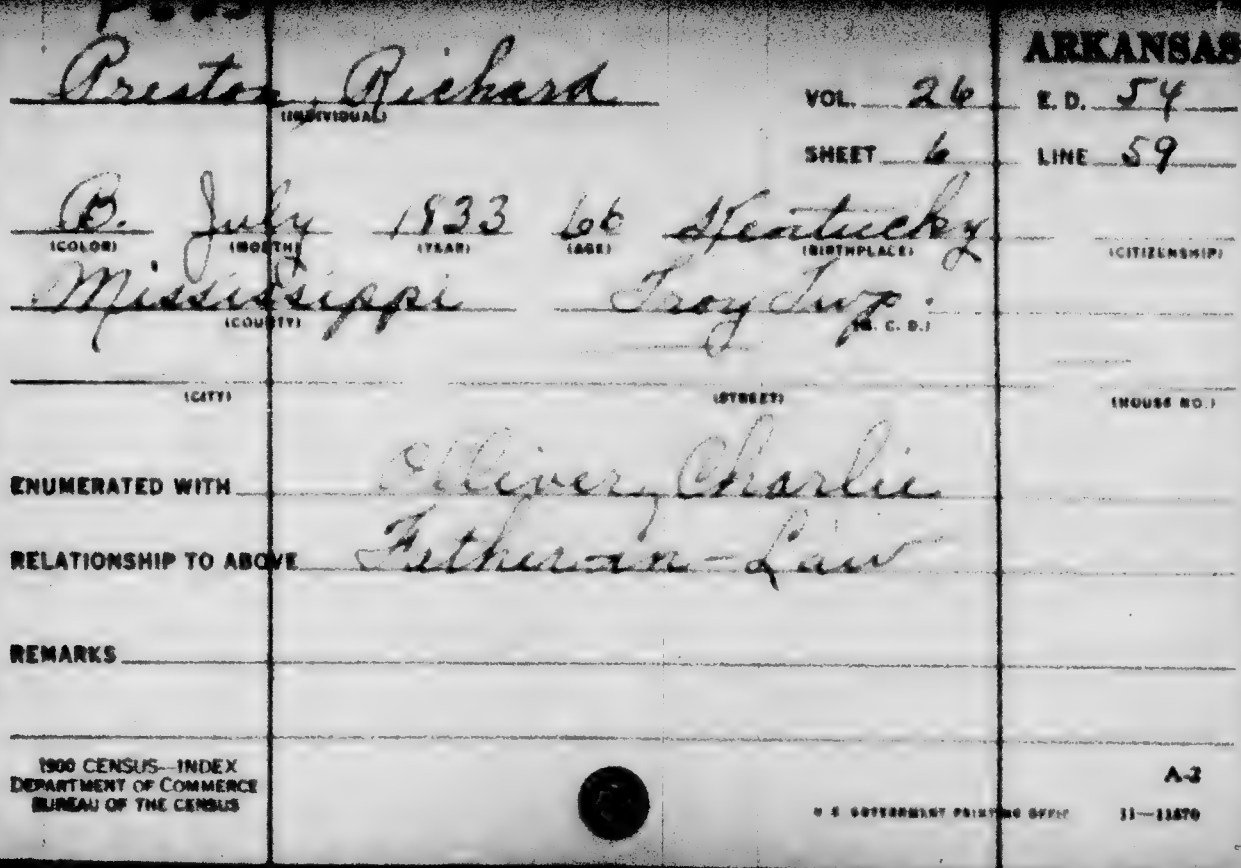 ARKANSAS
Preston, Richard VOL. 26 E. D. 54
(INDIVIDUAL)
SHEET 6 LINE 59
B. July 1833 66 Kentucky
(COLOR) (MONTH) (YEAR) (AGE) (BIRTHPLACE) (CITIZENSHIP)
Mississippi Troy Twp.
(COUNTY) (M. C. D.)
(CITY) (STREET) (HOUSE NO.)
ENUMERATED WITH Olliver, Charlie
RELATIONSHIP TO ABOVE Father-in-Law
REMARKS
1900 CENSUS—INDEX
DEPARTMENT OF COMMERCE
BUREAU OF THE CENSUS
A-2
U S GOVERNMENT PRINTING OFFICE 11—11870